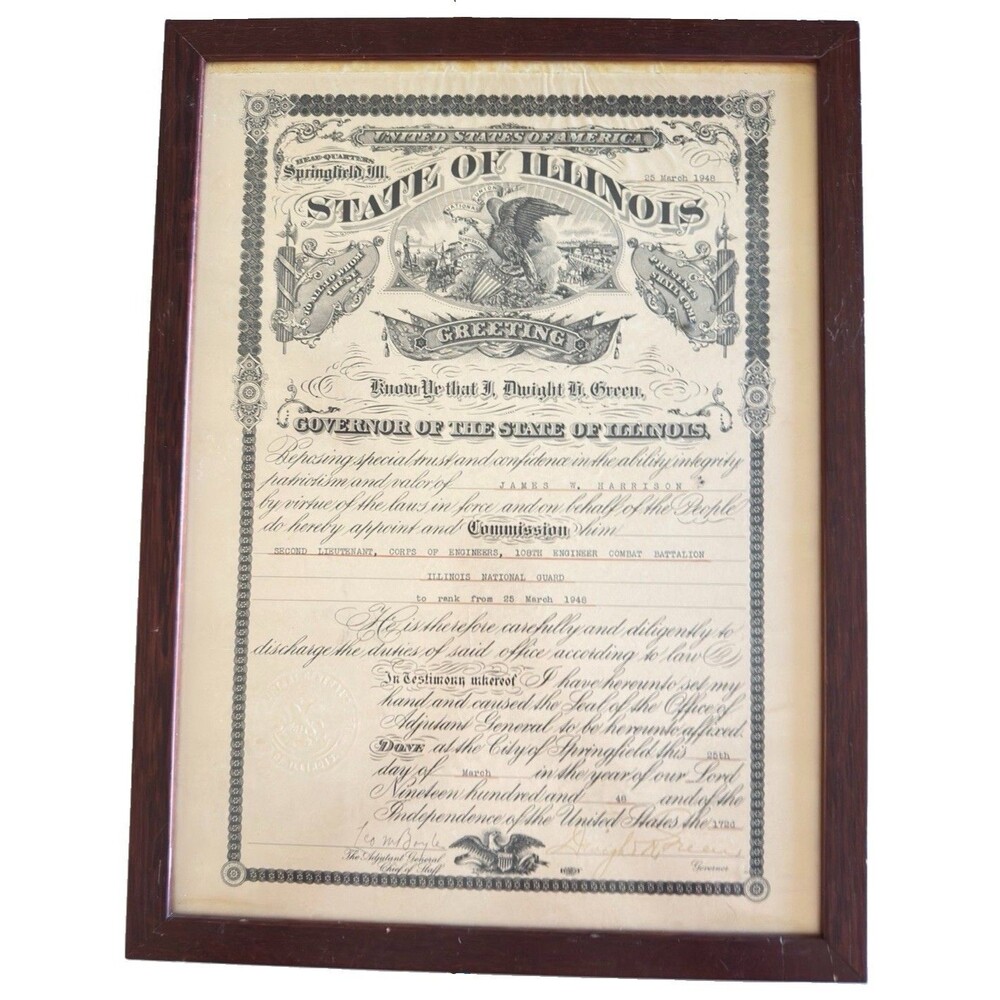 UNITED STATES OF AMERICA
HEAD-QUARTERS
Springfield Ill.
25 March 1948
STATE OF ILLINOIS
NATIONAL UNION
TO ALL TO WHOM
THESE
PRESENTS
SHALL COME
GREETING
Know Ye that I, Dwight H. Green,
GOVERNOR OF THE STATE OF ILLINOIS.
Reposing special trust and confidence in the ability, integrity
patriotism and valor of JAMES W. HARRISON
by virtue of the laws in force and on behalf of the People
do hereby appoint and Commission him
SECOND LIEUTENANT, CORPS OF ENGINEERS, 108TH ENGINEER COMBAT BATTALION
ILLINOIS NATIONAL GUARD
to rank from 25 March 1948
He is therefore carefully and diligently to
discharge the duties of said office according to law
In Testimony whereof I have hereunto set my
hand and caused the Seal of the Office of
Adjutant General to be hereunto affixed.
DONE at the City of Springfield this 25th
day of March in the year of our Lord
Nineteen hundred and 48 and of the
Independence of the United States the 172d
Leo M Boyle
Dwight H. Green
The Adjutant General
Chief of Staff
Governor